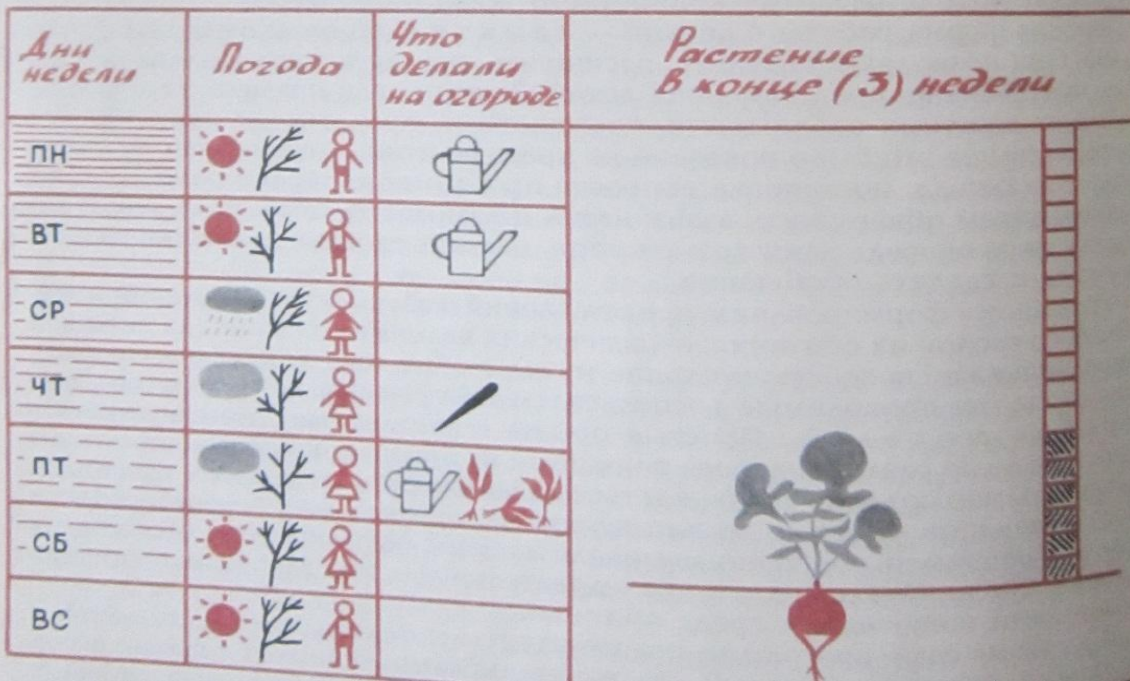 Дни
недели
Погода
Что
делали
на огороде
Растение
в конце (3) недели
ПН
ВТ
СР
ЧТ
ПТ
СБ
ВС